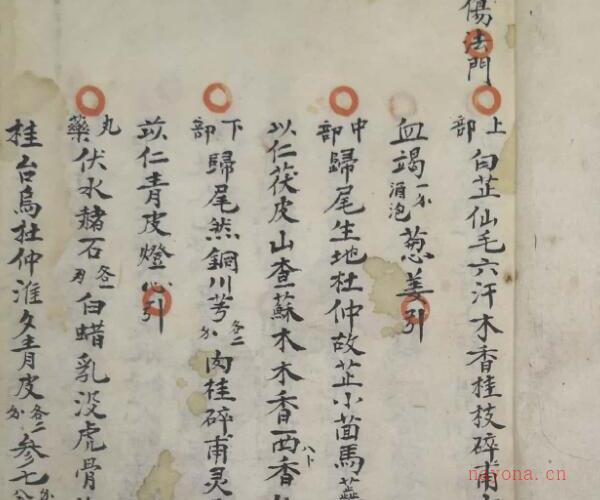 傷法門
上部 白芷仙毛六汗木香桂枝碎甫
血竭一分酒泡葱姜引
中部 歸尾生地杜仲故芷小茴馬
苡仁茯皮山查蘇木木香西香
下部 歸尾然銅川芎各二分肉桂碎甫灵
苡仁青皮燈心引
丸藥 伏水赭石各一白蜡乳没虎骨
桂台烏杜仲淮夕青皮各二分參七
nayona.cn